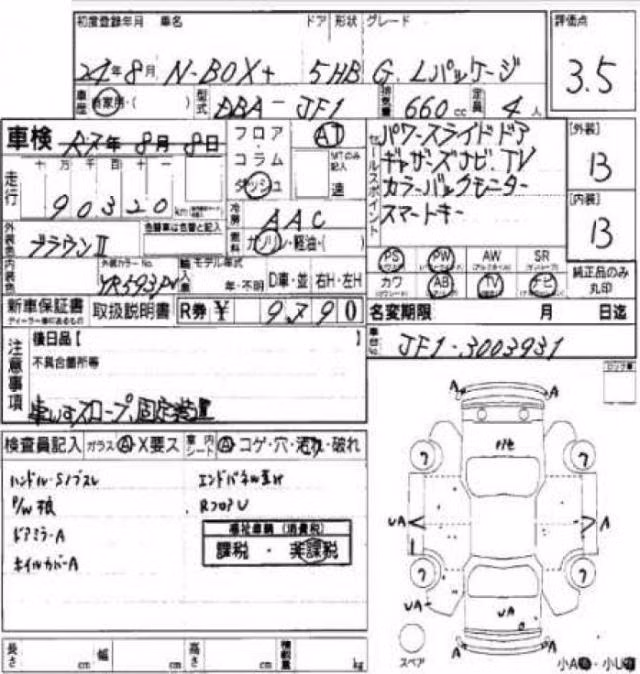 初度登録年月 車名 ドア 形状 グレード 評価点
24年8月 N-BOX+ 5HB G.Lパッケージ 3.5
車歴 自家用・( ) 型式 DBA-JF1 排気量 660cc 定員 4人
車検 R7年8月8日
フロア・コラム・ダッシュ AT MTのみ記入 速
セールスポイント
パワースライドドア
ギャザーズナビ.TV
カラーバックモニター
スマートキー
[外装] B
[内装] B
走行 十万 万 千 百 十
90320km
冷房 AAC
燃料 ガソリン・軽油・( )
外装色 ブラウンII 色替車は色替と記入
内装色 外装カラーNo. YR593P
輸入車 モデル年式 年・不明 D車・並 右H・左H
PS PW AW SR
カワ AB TV ナビ
純正品のみ丸印
新車保証書 ディーラー印のあるもの 取扱説明書 R券¥ 9790
名変期限 月 日迄
車台No. JF1-3003931
注意事項
後日品【 】
不具合箇所等
車いすスロープ、固定装置
検査員記入 ガラス A・X要ス 車内シート A コゲ・穴・汚れ・破れ
ハンドル・Sノブスレ エンドパネル
P/W Rフロア U
ドアミラーA
ホイルカバーA
福祉車輌(消費税)
課税・非課税
A A
UA A
UA UA
A A
スペア
小A・小U
長さ cm 幅 cm 高さ cm 積載量 kg